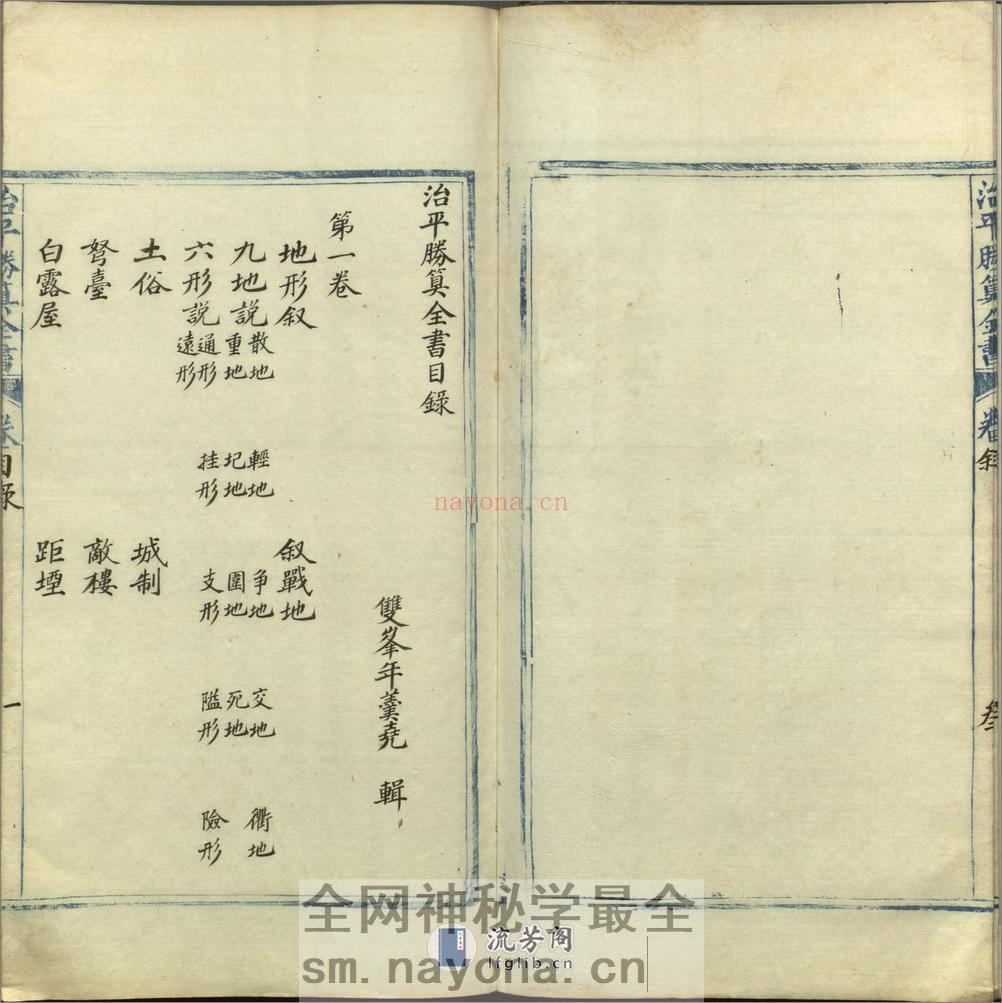 治平勝算全書
卷
叙
叁
治平勝算全書目錄
雙峯年羹堯 輯
第一卷
地形叙 叙戰地
九地説 散地 輕地 争地 交地 衢地
重地 圮地 圍地 死地
六形説 通形 挂形 支形 隘形 險形
遠形
土俗 城制
弩臺 敵樓
白露屋 距堙
治平勝算全書
卷
目录
一
nayona.cn
全网神秘学最全
流芳阁
lfglib.cn
sm.nayona.cn